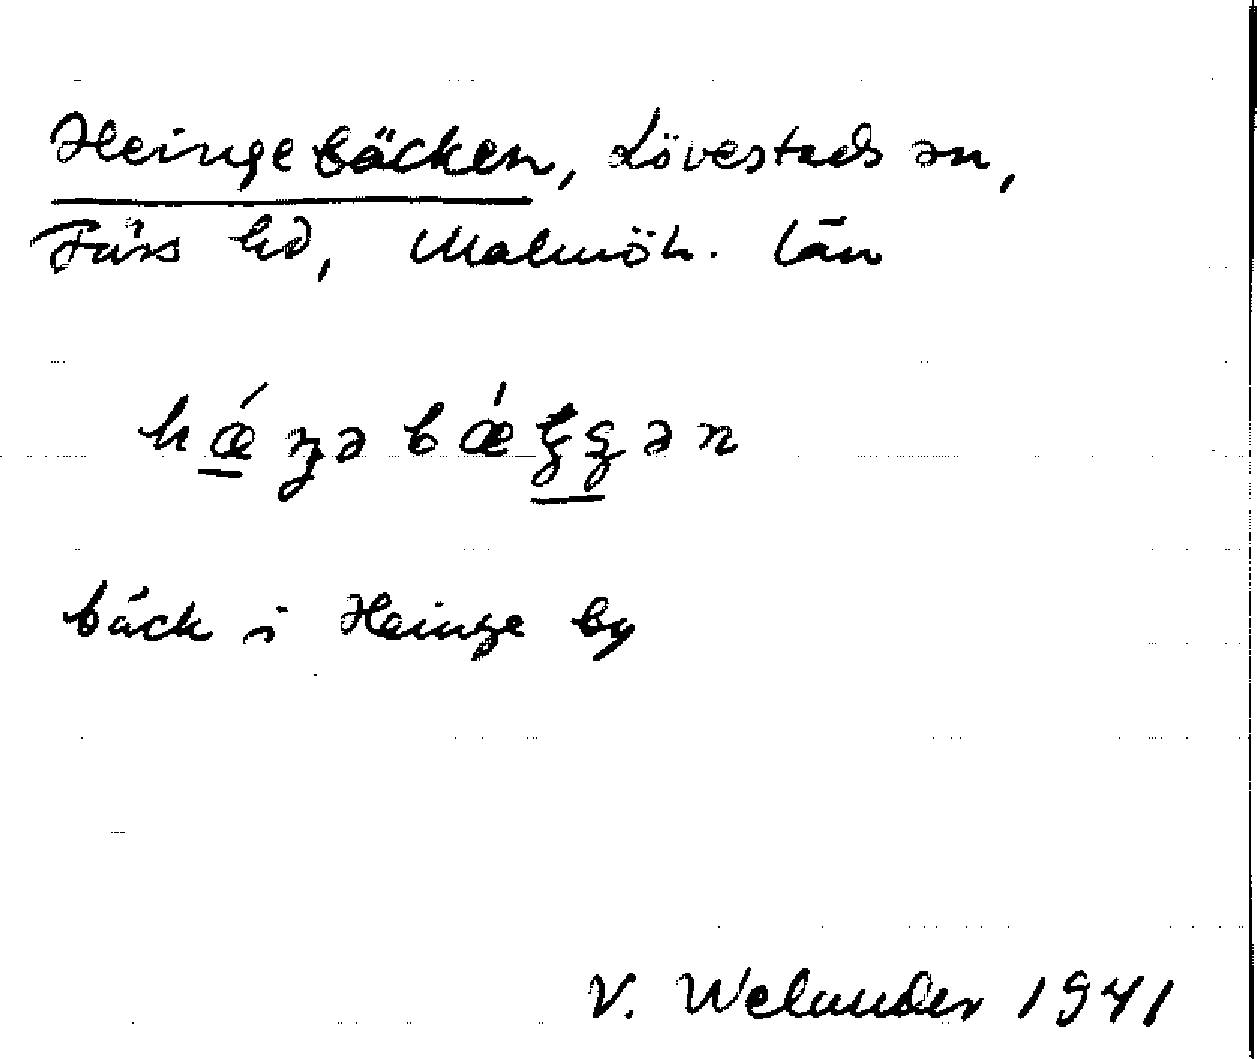 Heingebäcken, Lövestads sn,
Färs hd, Malmöh. län
bäck i Heinge by
V. Welander 1941